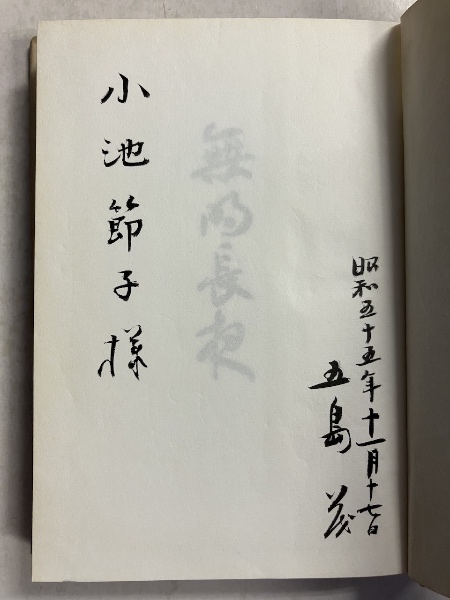 昭和五十五年十一月十七日
五島茂
無明長夜
小池節子様